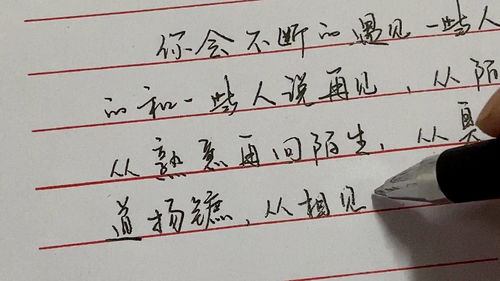 你会不断的遇见一些人
的和一些人说再见，从陌
从熟悉再回陌生，从
道扬镳，从相见